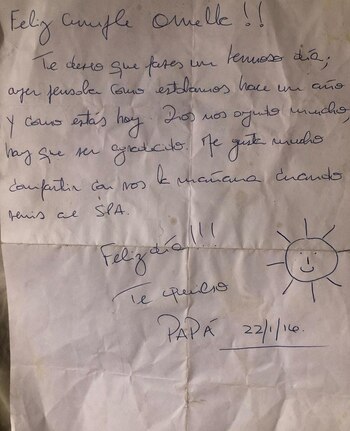 Feliz cumple Ornella!!
Te deseo que pases un hermoso día;
ayer pensaba como estabamos hace un año
y como estás hoy. Dios nos ayudo mucho,
hay que ser agradecido. Me gusta mucho
compartir con vos la mañana cuando
venis al SPA.
Feliz día!!!
Te quiero
PAPÁ 22/1/16.